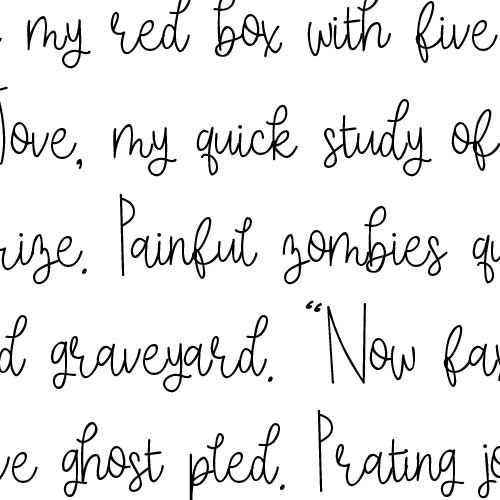 my red box with five
Jove, my quick study of
rize. Painful zombies qu
d graveyard. "Now fax
ve ghost pled. Prating jo